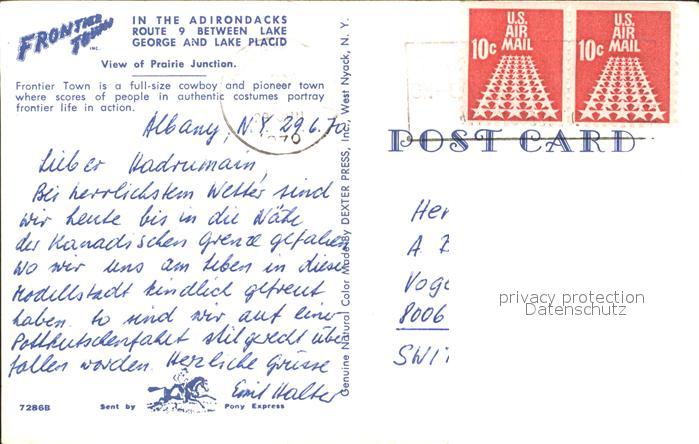 FRONTIER TOWN INC.
IN THE ADIRONDACKS
ROUTE 9 BETWEEN LAKE
GEORGE AND LAKE PLACID
View of Prairie Junction.
Frontier Town is a full-size cowboy and pioneer town
where scores of people in authentic costumes portray
frontier life in action.
Albany, N.Y. 29.6.70
Lieber Hadrumain,
Bei herrlichstem Wetter sind
wir heute bis in die Nähe
der Kanadischen Grenze gefahren
wo wir uns am Leben in dieser
Modellstadt kindlich gefreut
haben. So sind wir auf einer
Postkutschenfahrt stilgerecht über
fallen worden. Herzliche Grüsse
Emil Halter
7286B Sent by Pony Express
Genuine Natural Color Made by DEXTER PRESS, Inc., West Nyack, N. Y.
U.S. AIR MAIL 10c
U.S. AIR MAIL 10c
POST CARD
Her
A.
Voge
8006
SWIT
privacy protection
Datenschutz